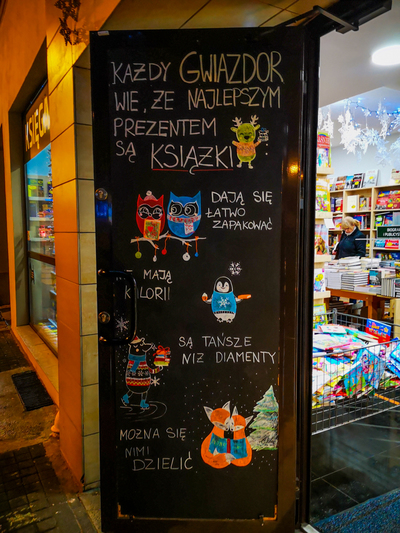 KAŻDY GWIAZDOR
WIE, ŻE NAJLEPSZYM
PREZENTEM
SĄ KSIĄŻKI
DAJĄ SIĘ
ŁATWO
ZAPAKOWAĆ
MAJĄ
SĄ TAŃSZE
NIŻ DIAMENTY
MOŻNA SIĘ
NIMI
DZIELIĆ
KSIĘGA